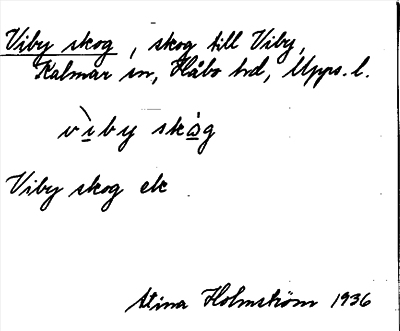 Viby skog, skog till Viby,
Kalmar sn, Håbo hd, Upps. l.
vìby skò̀g
Viby skog ek
Stina Holmström 1936